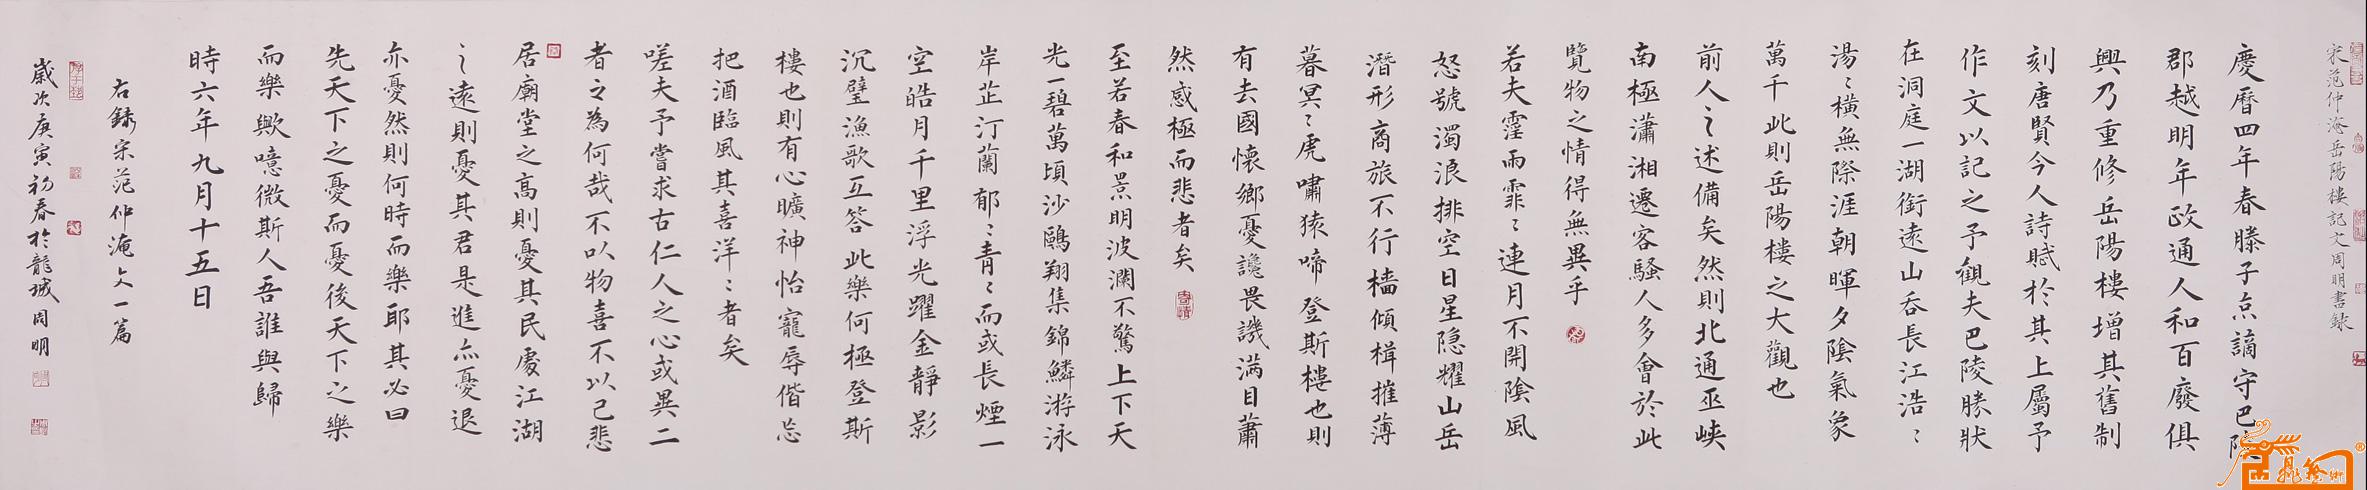 宋范仲淹岳陽樓記文周明書録
慶曆四年春滕子京謫守巴陵
郡越明年政通人和百廢俱
興乃重修岳陽樓增其舊制
刻唐賢今人詩賦於其上屬予
作文以記之予觀夫巴陵勝狀
在洞庭一湖銜遠山吞長江浩〻
湯〻橫無際涯朝暉夕陰氣象
萬千此則岳陽樓之大觀也
前人之述備矣然則北通巫峽
南極瀟湘遷客騷人多會於此
覽物之情得無異乎
若夫霪雨霏〻連月不開陰風
怒號濁浪排空日星隐耀山岳
潛形商旅不行檣傾楫摧薄
暮冥〻虎嘯猿啼登斯樓也則
有去國懷鄉憂讒畏譏滿目蕭
然感極而悲者矣
至若春和景明波瀾不驚上下天
光一碧萬頃沙鷗翔集錦鱗游泳
岸芷汀蘭郁〻青〻而或長煙一
空皓月千里浮光躍金靜影
沉璧漁歌互答此樂何極登斯
樓也則有心曠神怡寵辱偕忘
把酒臨風其喜洋〻者矣
嗟夫予嘗求古仁人之心或異二
者之為何哉不以物喜不以己悲
居廟堂之高則憂其民處江湖
之遠則憂其君是進亦憂退
亦憂然則何時而樂耶其必曰
先天下之憂而憂後天下之樂
而樂歟噫微斯人吾誰與歸
時六年九月十五日
右錄宋范仲淹文一篇
歲次庚寅初春於龍城周明